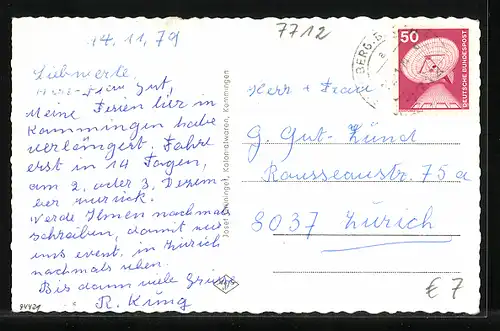 14.11.79
7712
Liebwerte
Frau Gut,
Meine Ferien hier in
Kommingen habe
verlängert. Fahre
erst in 14 Tagen,
am 2. oder 3. Dezem-
ber zurück.
Werde Ihnen nochmals
schreiben, damit wir
uns event. in Zürich
nochmals sehen.
Bis dann viele Grüsse
R. Küng
94421
Kolonialwaren, Kommingen
BERG
50
DEUTSCHE BUNDESPOST
Herr + Frau
G. Gut-Zünd
Rousseaustr. 75a
8037 Zürich
€ 7